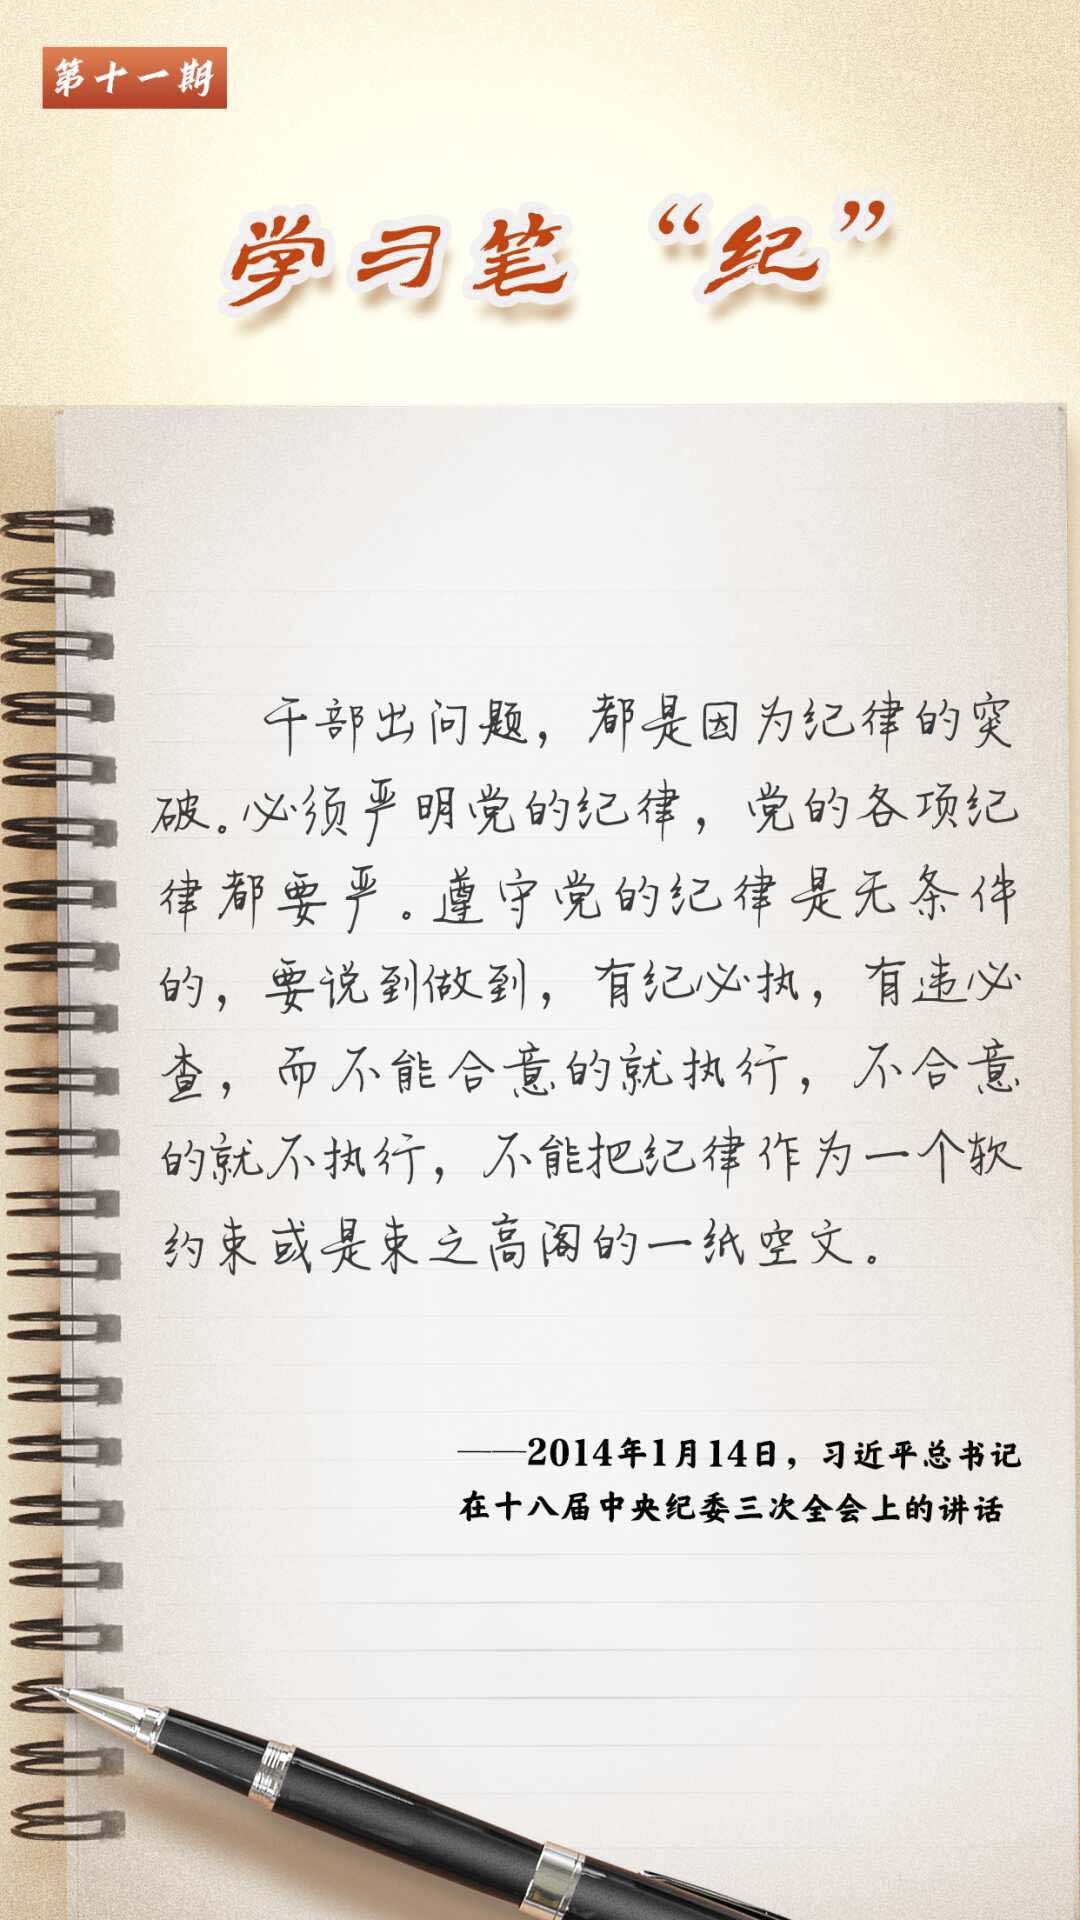 第十一期
学习笔“纪”
干部出问题，都是因为纪律的突
破。必须严明党的纪律，党的各项纪
律都要严。遵守党的纪律是无条件
的，要说到做到，有纪必执，有违必
查，而不能合意的就执行，不合意
的就不执行，不能把纪律作为一个软
约束或是束之高阁的一纸空文。
——2014年1月14日，习近平总书记
在十八届中央纪委三次全会上的讲话